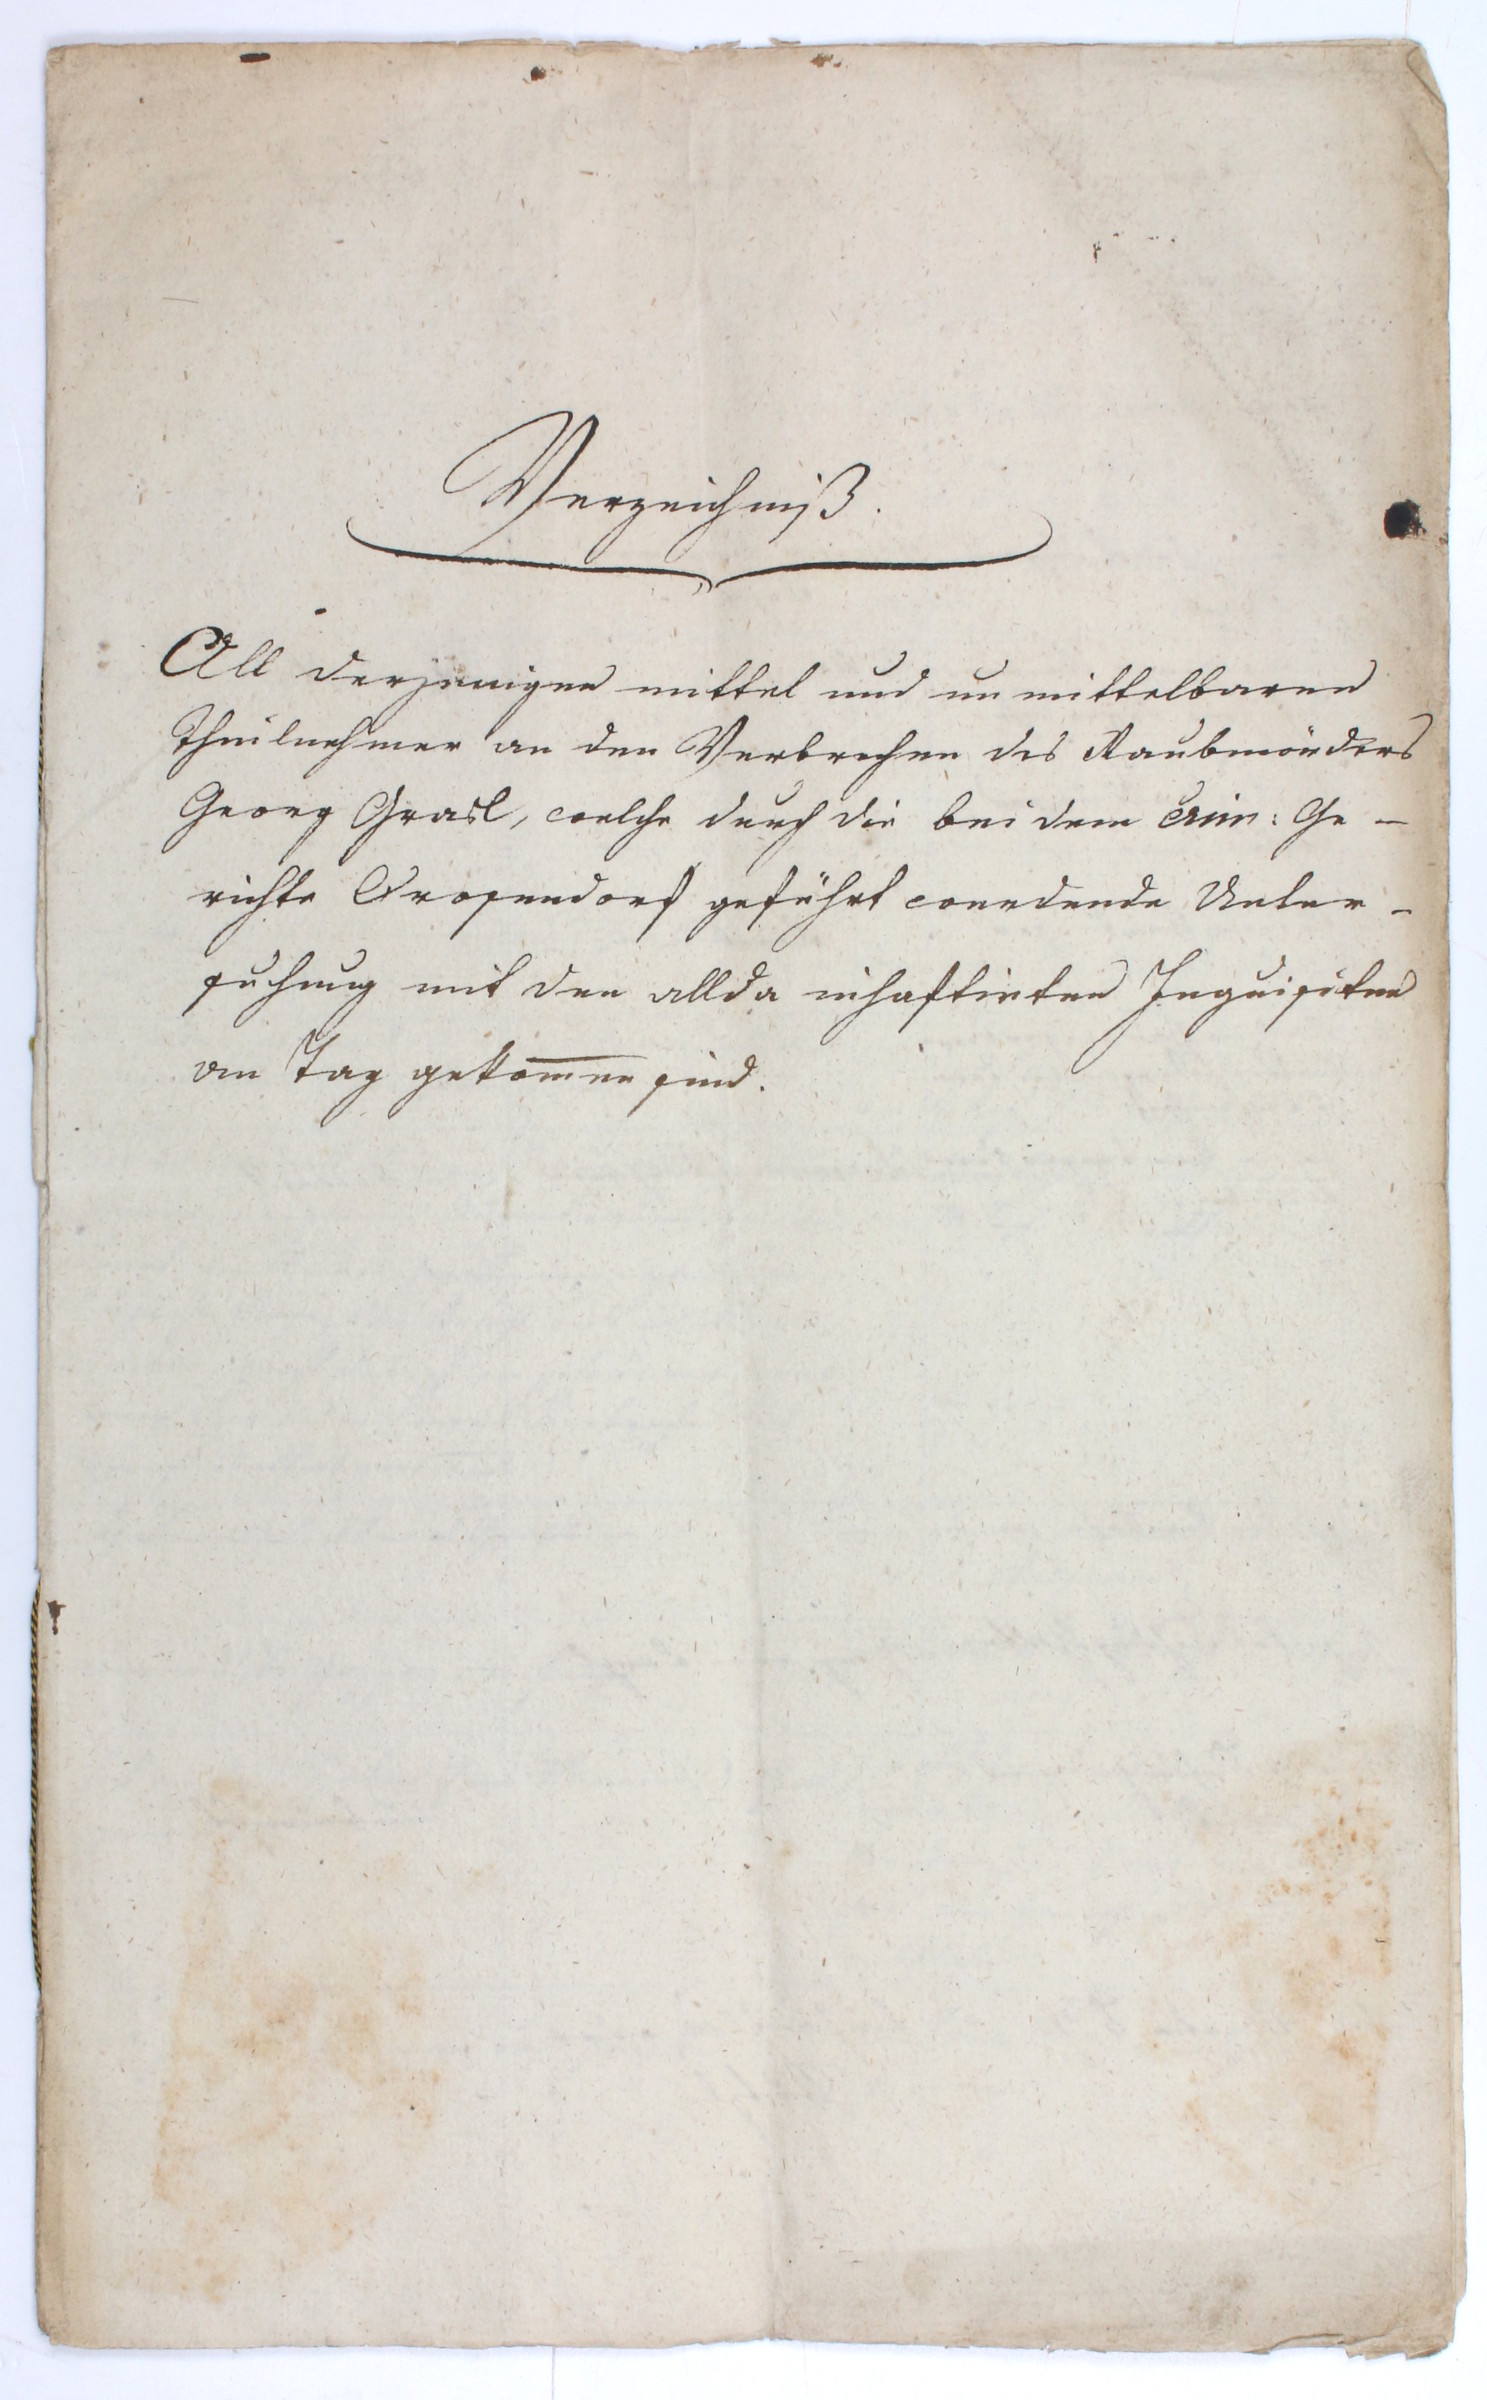 Verzeichniß.
All derjenigen mittel und un mittelbaren
Theilnehmer an den Verbrechen des Raubmörders
Georg Grasl, welche durch die bei dem Crim: Ge-
richte Drosendorf geführt werdende Unter-
suchung mit den allda inhaftirten Inquisiten
an Tag gekom̅en sind.